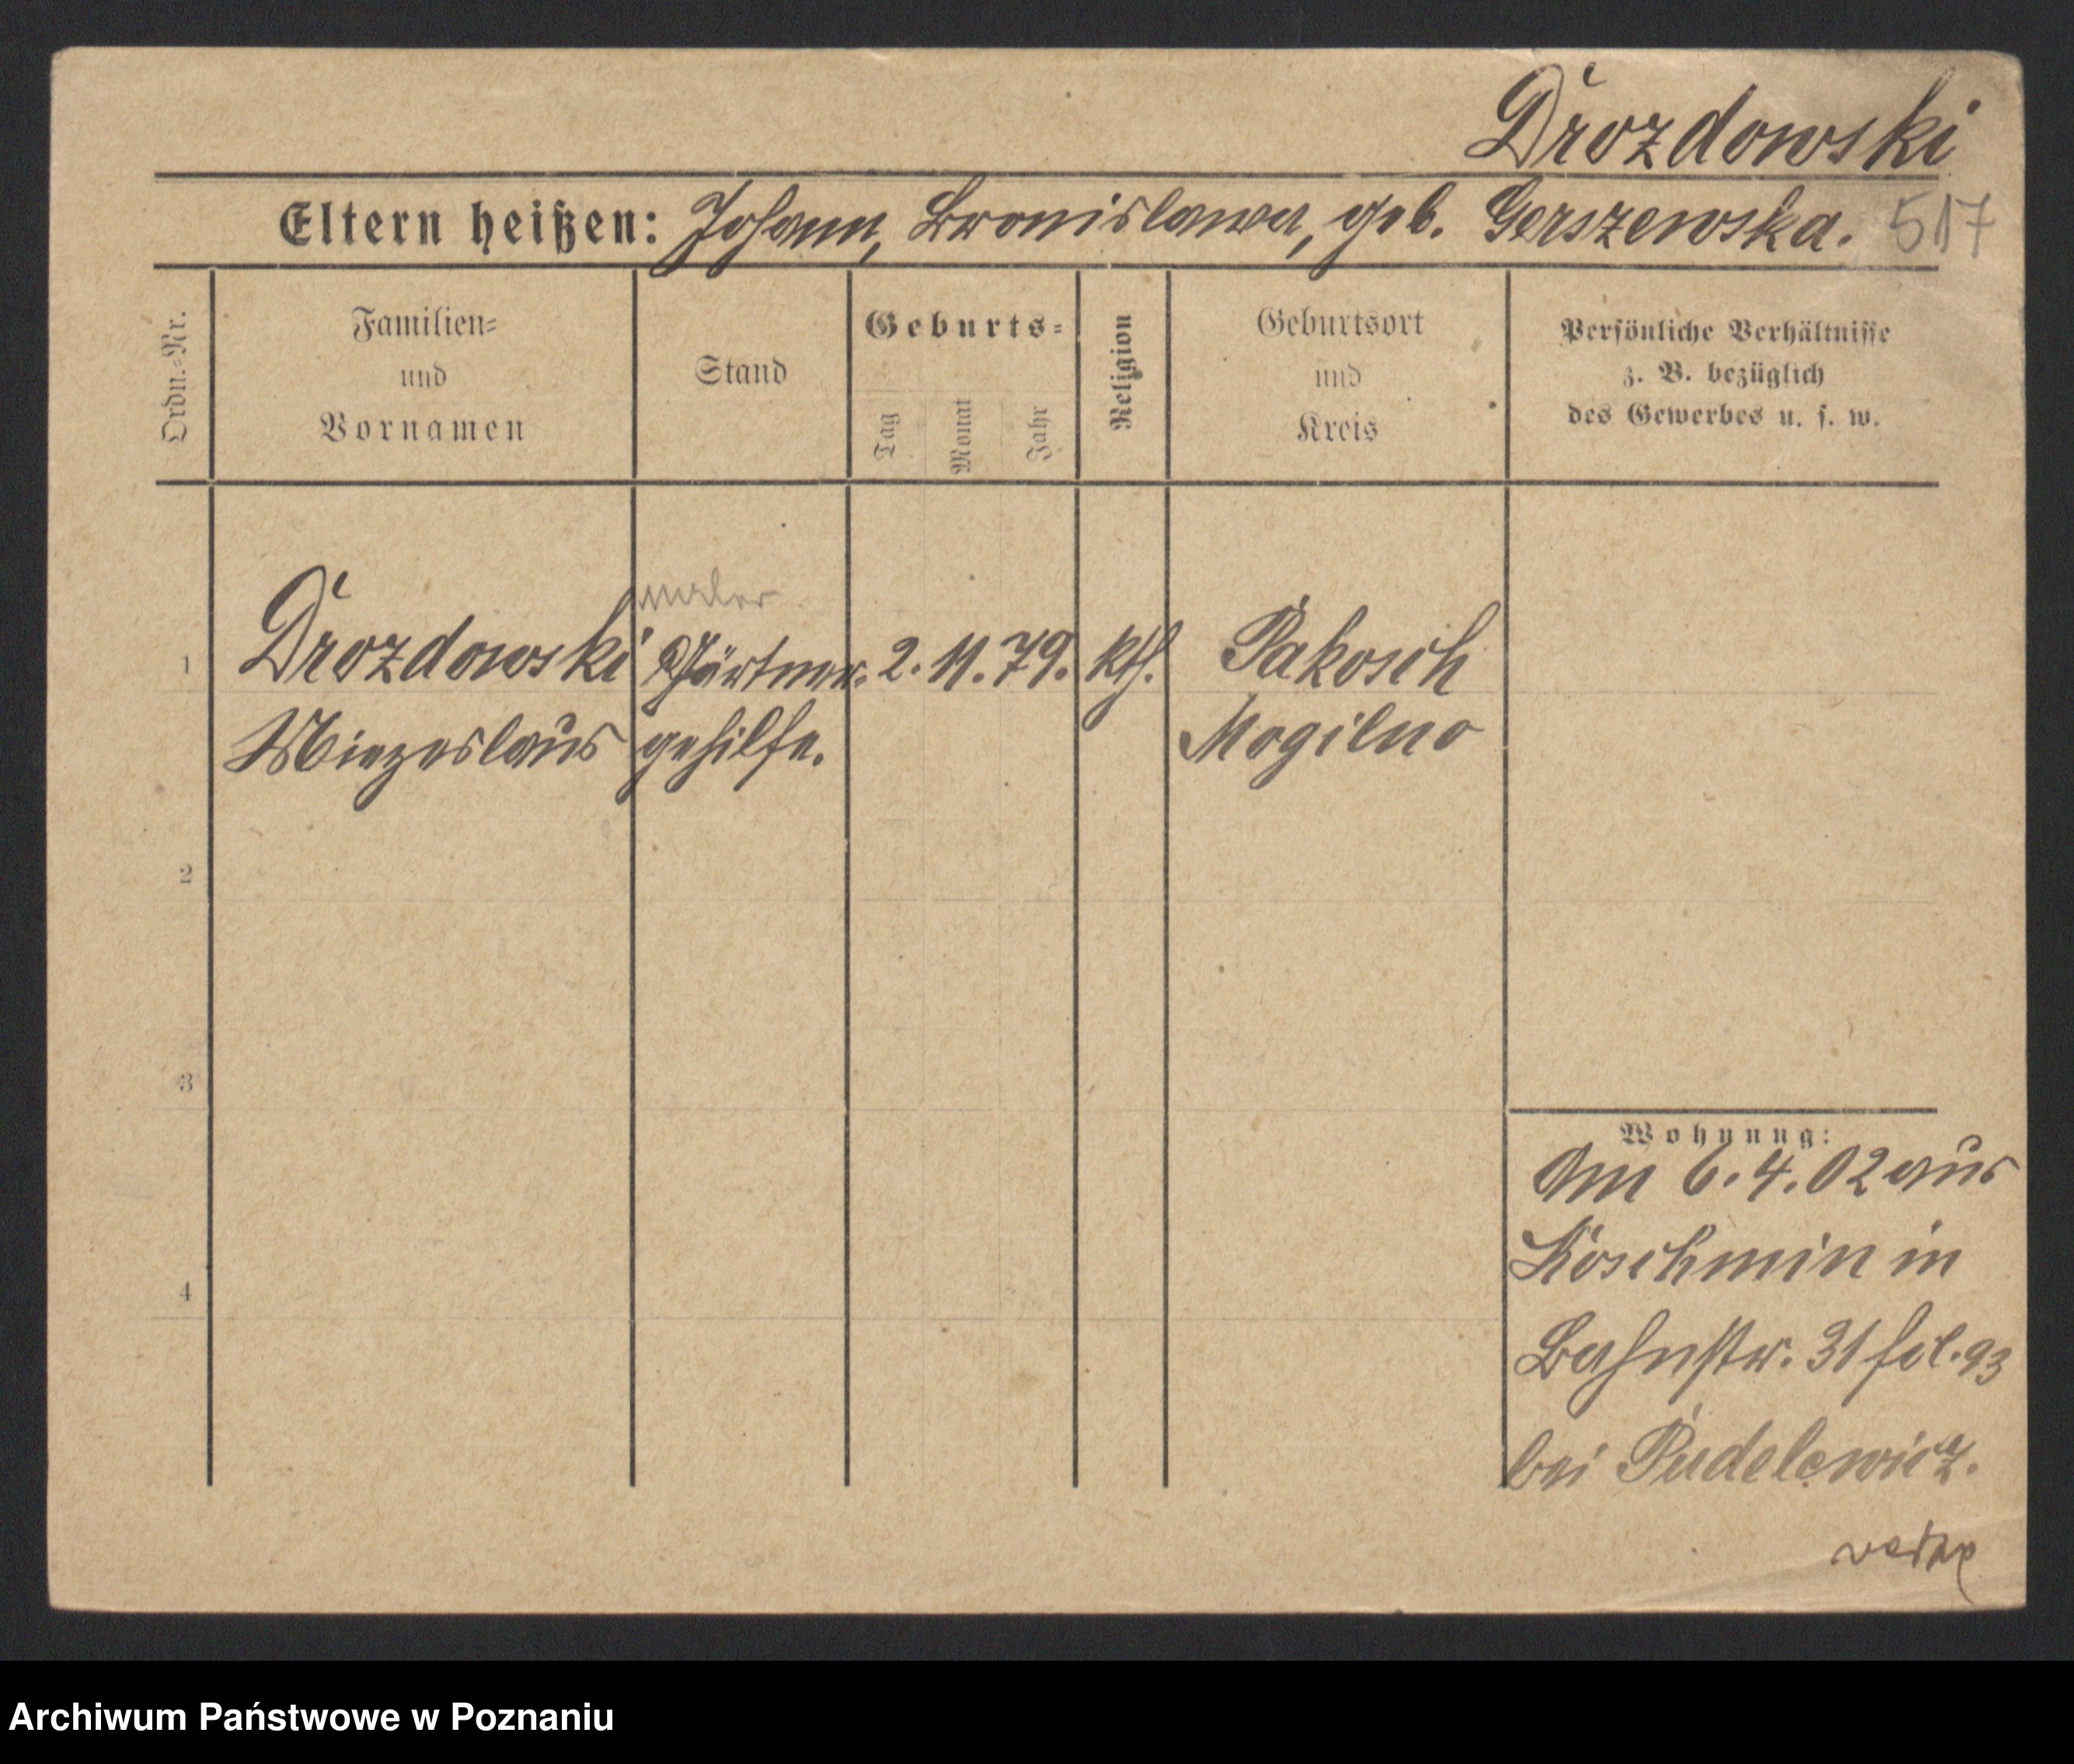 Drozdowski
Eltern heißen: Johann, Bronislawa, geb. Gerszewska. 517
Ordn.=Nr.
Familien=
und
Vornamen
Stand
Geburts=
Tag
Monat
Jahr
Religion
Geburtsort
und
Kreis
Persönliche Verhältnisse
z. B. bezüglich
des Gewerbes u. s. w.
maler
1 Drozdowski Gärtner= 2. 11. 79. kth. Pakosch
Miezeslaus gehilfe. Mogilno
2
3
4
Wohnung:
Am 6. 4. 02 aus
Koschmin in
Bahnstr. 31 fol. 93
bei Pudelewicz.
Archiwum Państwowe w Poznaniu